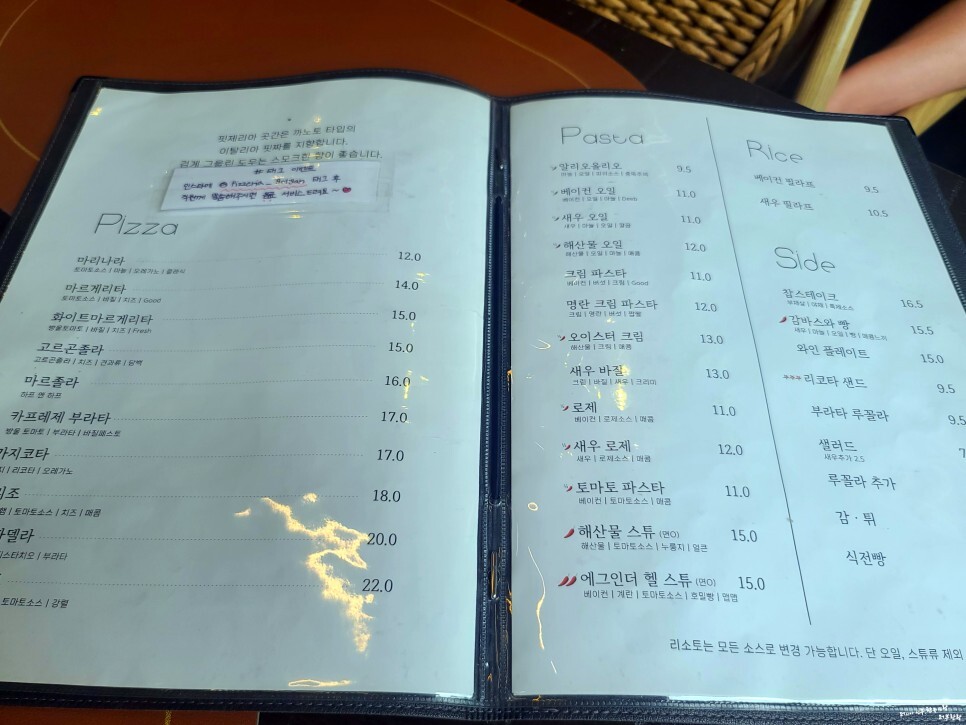 핏제리아 곳간은 까노토 타입의
이탈리아 핏짜를 지향합니다.
검게 그을린 도우는 스모크한 향이 좋습니다.
# 태그 이벤트
Pizza
마리나라 12.0
토마토소스 | 마늘 | 오레가노 | 클래식
마르게리타 14.0
토마토소스 | 바질 | 치즈 | Good
화이트마르게리타 15.0
방울토마토 | 바질 | 치즈 | Fresh
고르곤졸라 15.0
고르곤졸라 | 치즈 | 견과류 | 담백
마르졸라 16.0
하프 앤 하프
카프레제 부라타 17.0
방울 토마토 | 부라타 | 바질페스토
가지코타 17.0
| 리코타 | 오레가노
18.0
| 토마토소스 | 치즈 | 매콤
델라 20.0
스타치오 | 부라타
22.0
토마토소스 | 강렬
Pasta
알리오올리오 9.5
베이컨 오일 11.0
베이컨 | 오일 | 마늘 | Best
새우 오일 11.0
새우 | 마늘 | 오일 | 깔끔
해산물 오일 12.0
해산물 | 오일 | 마늘 | 매콤
크림 파스타 11.0
베이컨 | 버섯 | 크림 | Good
명란 크림 파스타 12.0
크림 | 명란 | 버섯 | 짭짤
오이스터 크림 13.0
해산물 | 크림 | 매콤
새우 바질 13.0
크림 | 바질 | 새우 | 크리미
로제 11.0
베이컨 | 로제소스 | 매콤
새우 로제 12.0
새우 | 로제소스 | 매콤
토마토 파스타 11.0
베이컨 | 토마토소스 | 매콤
해산물 스튜 (면O) 15.0
해산물 | 토마토소스 | 누룽지 | 얼큰
에그인더 헬 스튜 (면O) 15.0
베이컨 | 계란 | 토마토소스 | 호밀빵 | 맵맵
Rice
베이컨 필라프 9.5
새우 필라프 10.5
Side
참스테이크 16.5
부채살 | 야채 | 특제소스
감바스와 빵 15.5
새우 | 마늘 | 오일 | 빵 | 매콤느끼
와인 플레이트 15.0
리코타 샌드 9.5
부라타 루꼴라 9.5
샐러드 7
새우추가 2.5
루꼴라 추가
감 · 튀
식전빵
리소토는 모든 소스로 변경 가능합니다. 단 오일, 스튜류 제외